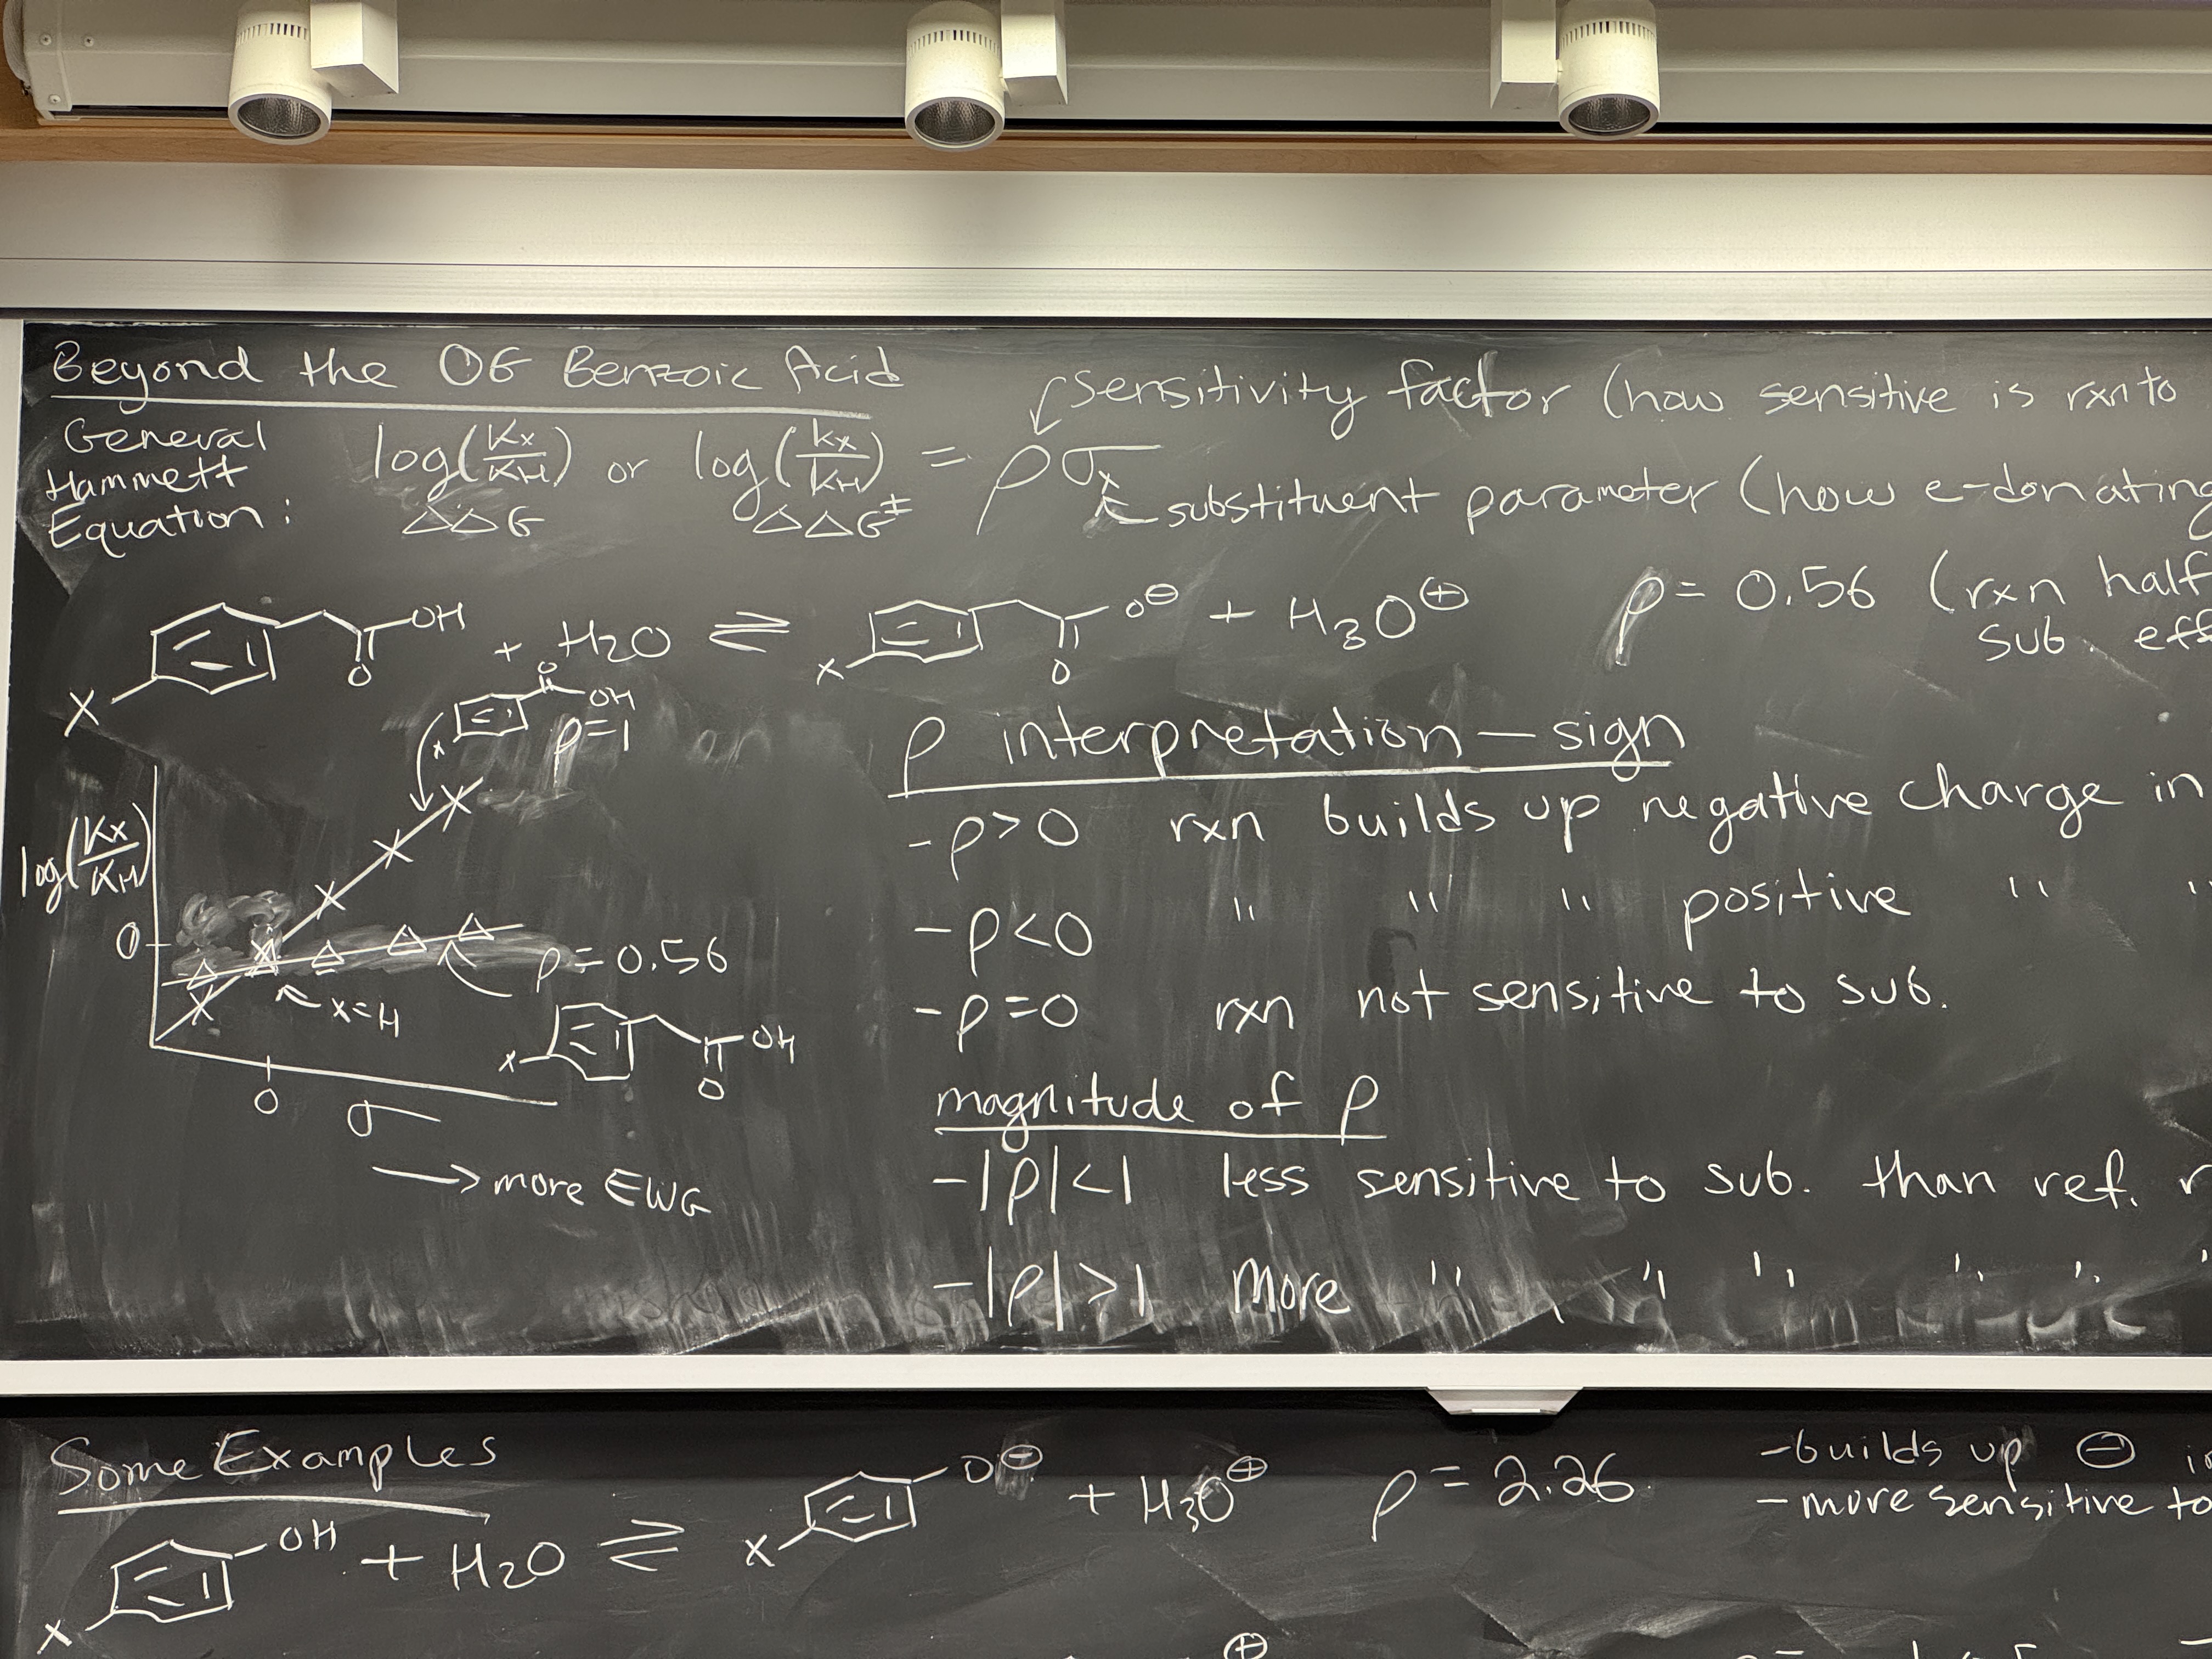 Beyond the OG Benzoic Acid
General Hammett Equation: log(Kx/KH) or log(kx/kH) = ρσx
ΔΔG ΔΔG‡
sensitivity factor (how sensitive is rxn to
substituent parameter (how e-donating
X OH O + H2O ⇌ X O⊖ O + H3O⊕ ρ = 0.56 (rxn half
sub. eff
x O OH
ρ=1
log(Kx/KH)
0
ρ=0.56
x=H
x OH O
0
σ
→ more EWG
ρ interpretation — sign
-ρ>0 rxn builds up negative charge in
-ρ<0 " " " positive " "
-ρ=0 rxn not sensitive to sub.
magnitude of ρ
-|ρ|<1 less sensitive to sub. than ref. r
-|ρ|>1 More " " " " " "
Some Examples
x OH + H2O ⇌ x O⊖ + H3O⊕ ρ = 2.26
-builds up ⊖ in
-more sensitive to
⊕